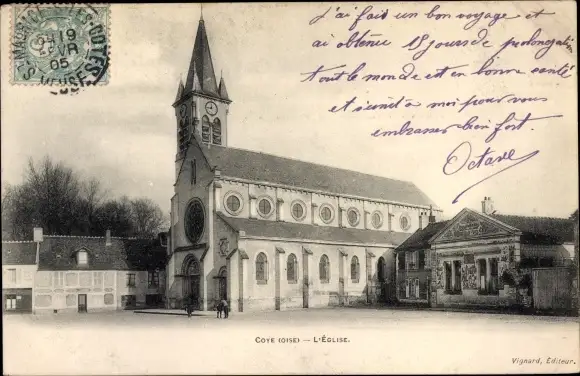 J'ai fait un bon voyage et
ai obtenu 15 jours de prolongation
Tout le monde est en bonne santé
et s'unit à moi pour vous
embrasser bien fort.
Octave
19
05
COYE (OISE) — L'ÉGLISE.
Vignard, Éditeur.